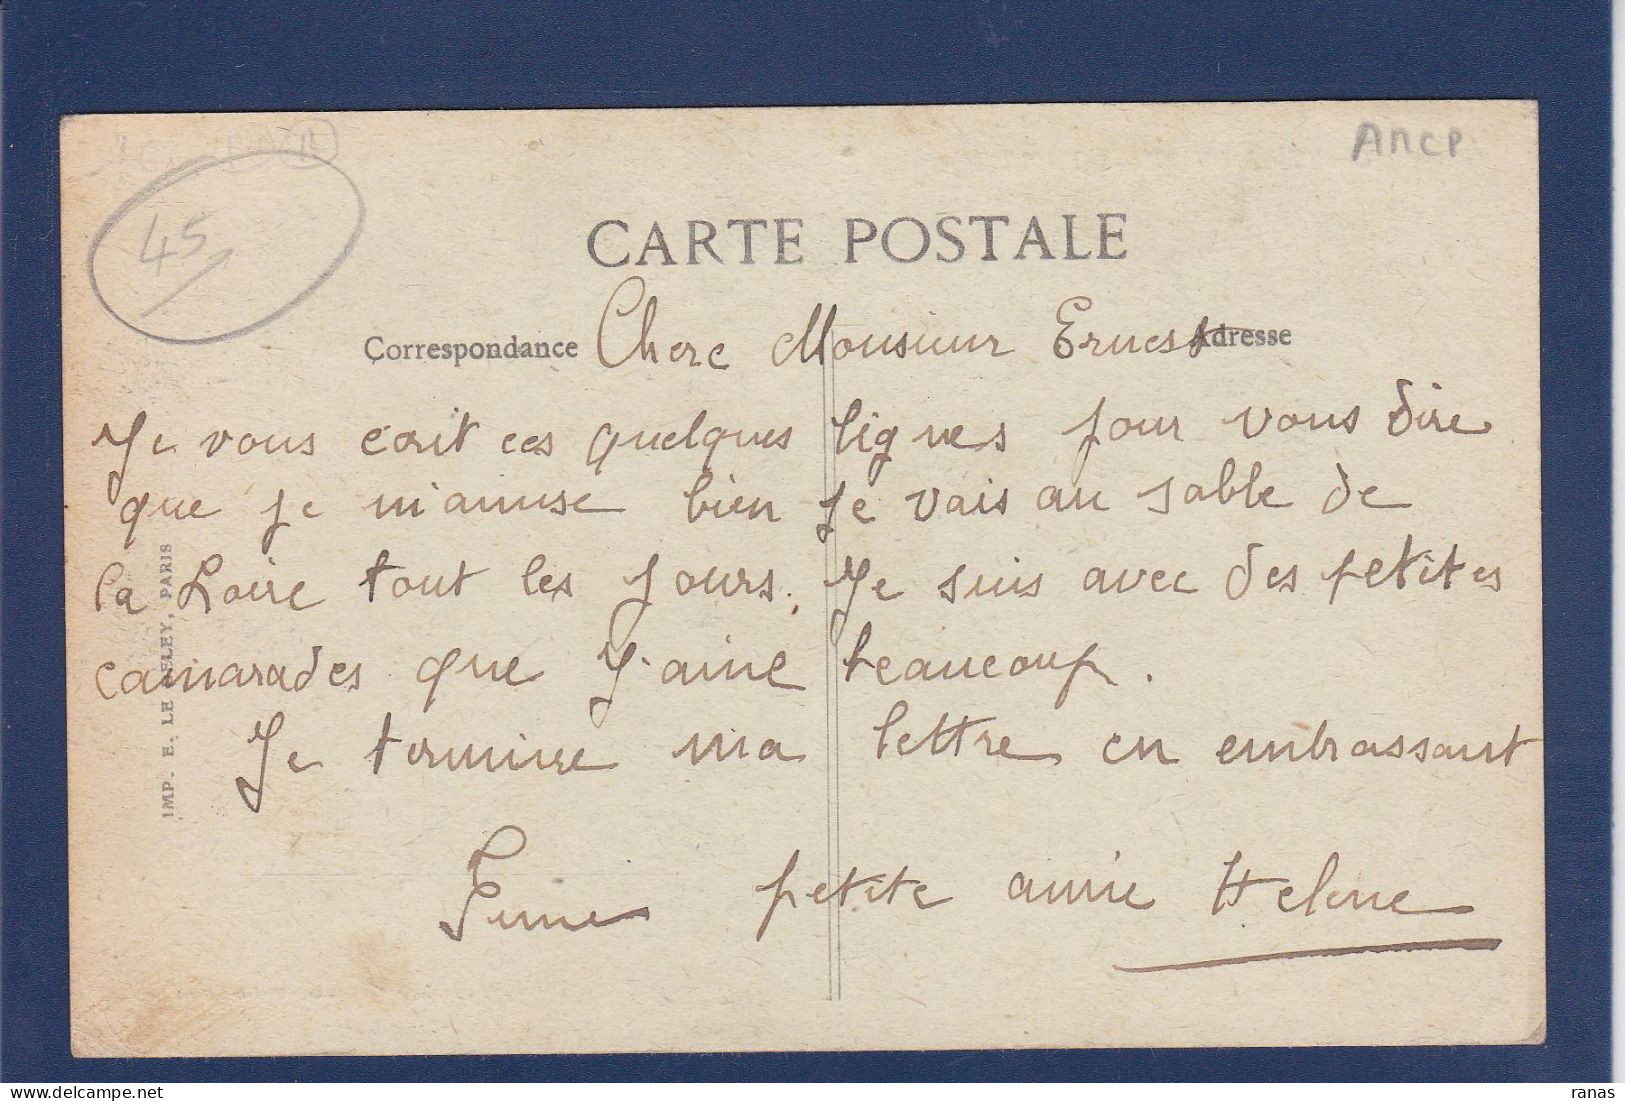 AMCP
45
CARTE POSTALE
Correspondance
Adresse
Chere Monsieur Ernest
Je vous ecrit ces quelques lignes pour vous dire
que je m'amuse bien je vais au sable de
la Loire tout les jours. Je suis avec des petites
camarades que j'aime beaucoup.
Je termine ma lettre en embrassant
petite amie Helene
IMP. E. LE DELEY, PARIS
ranas